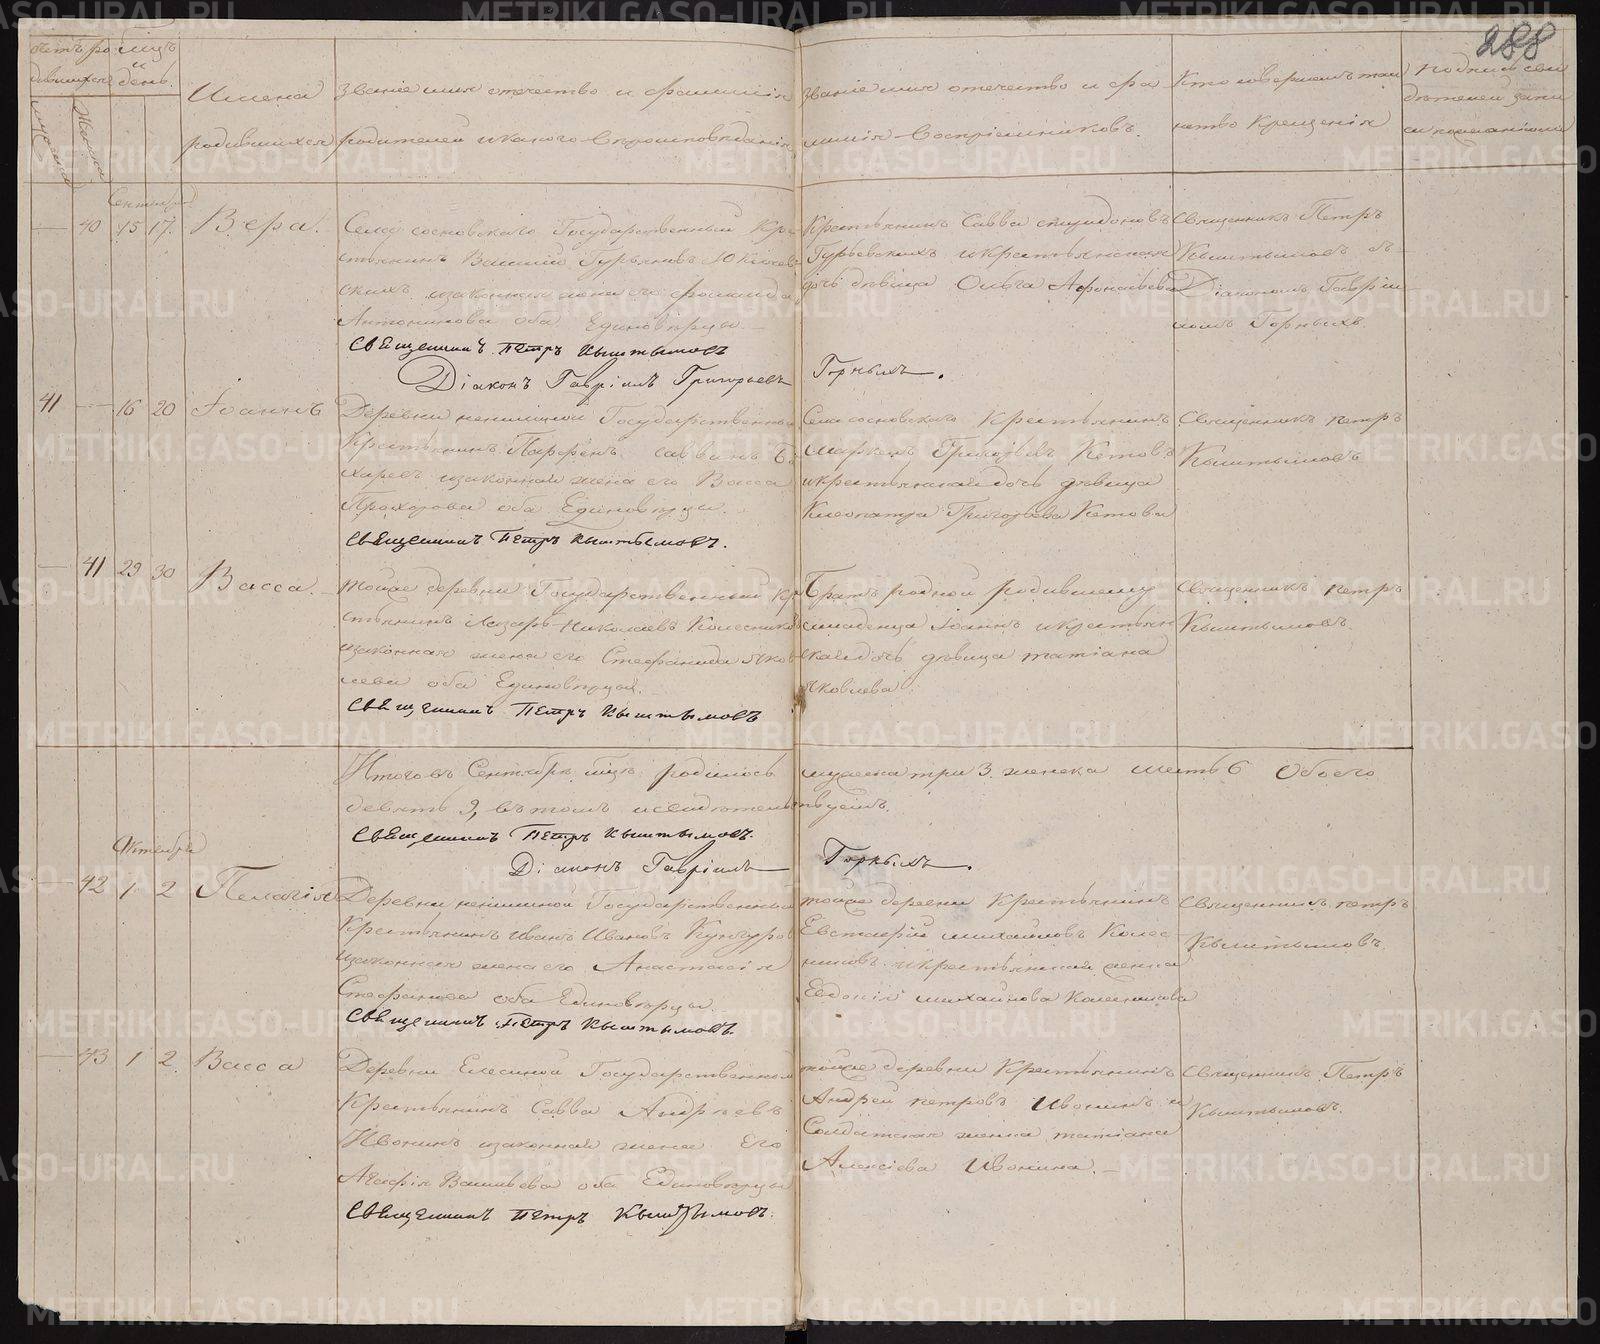 288
Имена
родившихся
Званiе имя отечество и фамилiя
родителей и какого вѣроисповѣданiя
Званiе имя отечество и фа
милiя воспрiемниковъ.
Кто совершалъ таи
нство крещенiя
Сентябрь
40 15 17. Вѣра.
Села сосновскаго Государственный Кре
стьянинъ Василiй Гурьяновъ
законная жена его
Антонинова оба Единовѣрцы
Священникъ Петръ Кыштымовъ
Дiаконъ Гаврiилъ Григорьевъ Горныхъ.
Крестьянинъ Савва спиридоновъ
Гурьевскихъ и крестьянская
дочь дѣвица Ольга Афонасьева
Священникъ Петръ
Кыштымовъ съ
Дiакономъ Гаврiи
ломъ Горныхъ
41 16 20 Iоаннъ
Деревни Государственный
Крестьянинъ Парфенъ саввинъ
законная жена его Васса
Прохорова оба Единовѣрцы.
Священникъ Петръ Кыштымовъ.
Села сосновскаго Крестьянинъ
Маркелъ Григорьевъ Кетовъ
и крестьянская дочь дѣвица
Клеопатра Григорьева Кетова
Священникъ петръ
Кыштымовъ
41 29 30 Васса.
тойже деревни Государственный Кре
стьянинъ Лазарь Николаевъ Колесников
законная жена его Стефанида Яков
лева оба Единовѣрцы.
Священникъ Петръ Кыштымовъ
Братъ родной родившему
младенца Iоаннъ и крестьян
ская дочь дѣвица татiана
Яковлева
Священникъ петръ
Кыштымовъ.
Итого въ Сентябрѣ мцѣ родилось мужеска три 3 женска шесть 6 Обоего
девять 9, въ томъ и свидѣтельствуемъ.
Священникъ Петръ Кыштымовъ.
Дiаконъ Гаврiилъ Горныхъ.
Октябрь
42 1 2 Пелагiя
Деревни Государственный
Крестьянинъ Иванъ Ивановъ Кунгуров
законная жена его Анастасiя
Стефанова оба Единовѣрцы
Священникъ Петръ Кыштымовъ.
тойже деревни Крестьянинъ
Евстафiй михайловъ Колес
никовъ и крестьянская женка
Евдокiя михайлова
Священникъ петръ
Кыштымовъ
43 1 2. Васса
Деревни Елесиной Государственной
Крестьянинъ Савва Андреевъ
Ивонинъ законная жена Его
Агафiя Васильева оба Единовѣрцы
Священникъ Петръ Кыштымовъ.
тойже деревни Крестьянинъ
Андрей петровъ Ивонинъ и
Солдатская женка татiана
Алексiева Ивонина.
Священникъ Петръ
Кыштымовъ.
METRIKI.GASO-URAL.RU